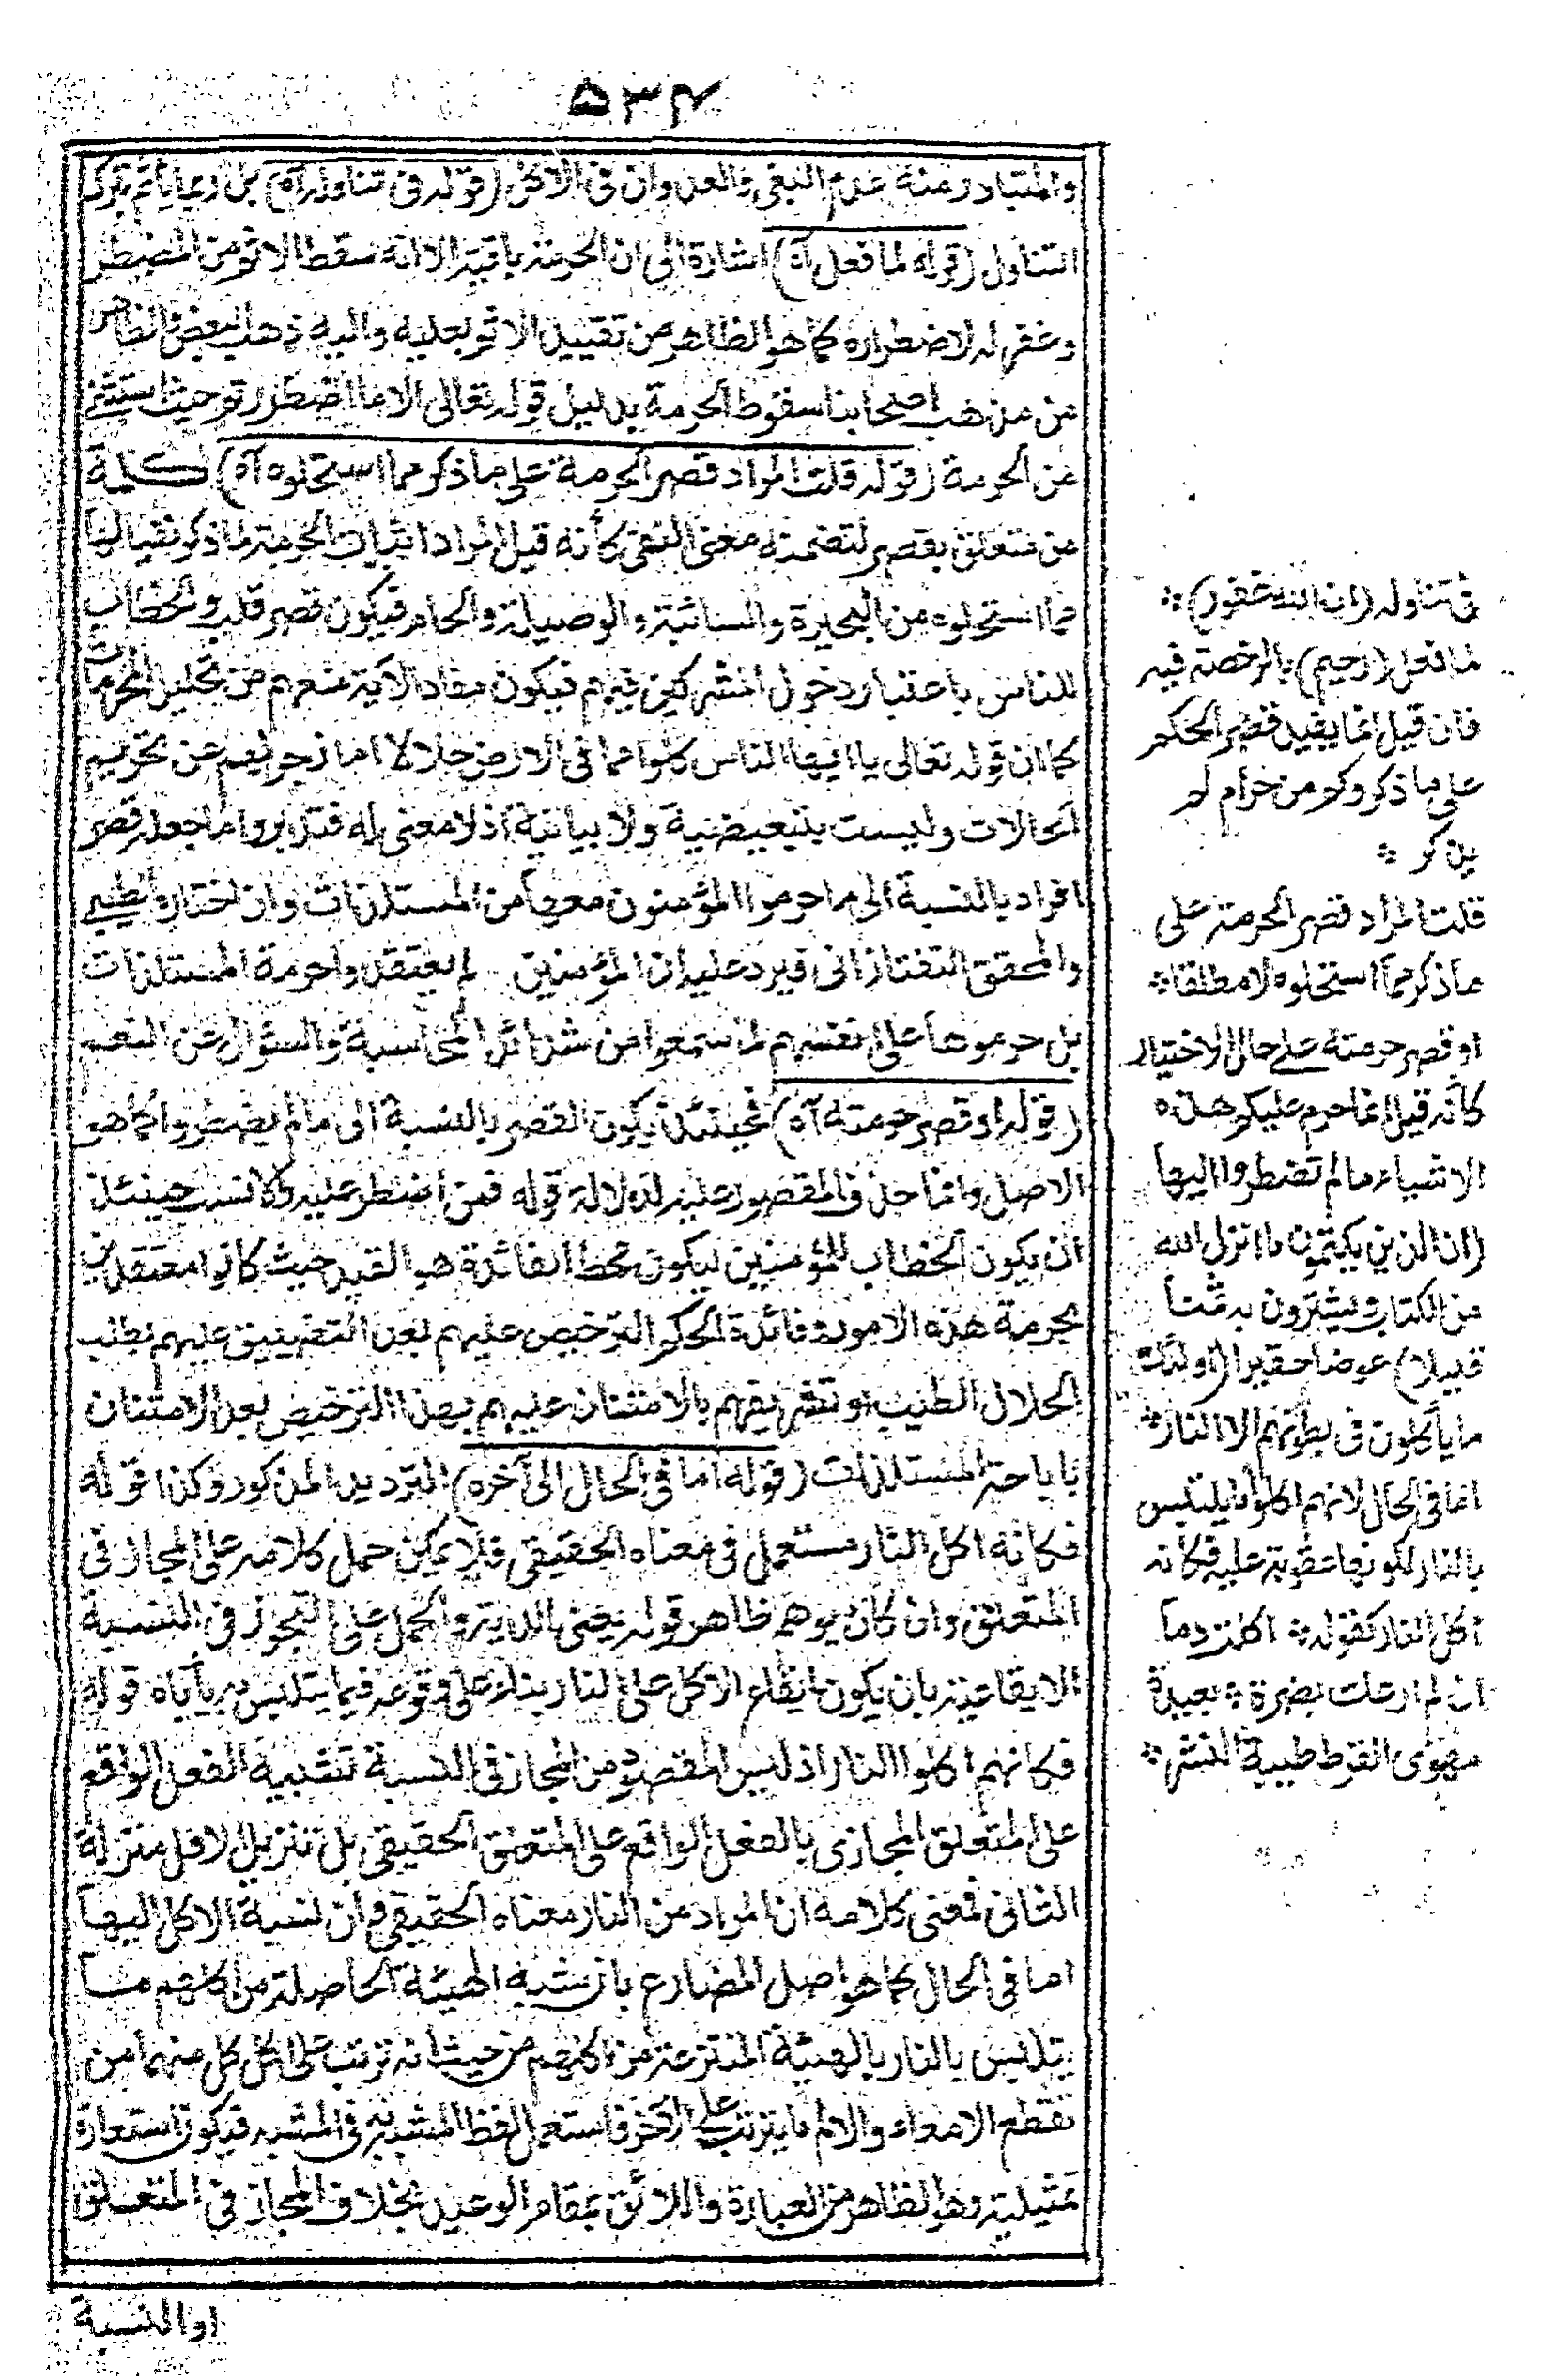 ۵۳۴
والمتبادر منه عدم البغى والعدوان فى الاكل (قوله فى تناوله آه) بل ربما يأثم بترك
التناول (قوله لما فعل آه) اشارة الى ان الحرمة باقية الا انه سقط الاثم من المضطر
وغفر له لاضطراره كما هو الظاهر من تقييد الاثم بعليه واليه ذهب البعض الظاهر
من مذهب اصحابنا سقوط الحرمة بدليل قوله تعالى الا ما اضطررتم حيث استثنى
من الحرمة (قوله قلت المراد قصر الحرمة على ما ذكر مما استحلوه آه) كلمة
من متعلق بقصر لتضمنه معنى النفى كأنه قيل المراد اثبات الحرمة لما ذكر نفيا لها
مما استحلوه من البحيرة والسائبة والوصيلة والحام فيكون قصر قلب والخطاب
للناس باعتبار دخول المشركين فيهم فيكون مفاد الآية منعهم من تحليل المحرمات
كما ان قوله تعالى يا ايها الناس كلوا مما فى الارض حلالا اما زجر لهم عن تحريم
الحالات وليست بتبعيضية ولا بيانية اذ لا معنى له فتدبروا ما جعله قصر
افراد بالنسبة الى ما حرموا المؤمنون معها من المستلذات وان اختاره الطيبى
والمحقق التفتازانى فيرد عليه ان المؤمنين لم يعتقدوا حرمة المستلذات
بل حرموها على انفسهم لما سمعوا من شدائد المحاسبة والسؤال عن النعم
(قوله او قصر حرمته آه) فحينئذ يكون القصر بالنسبة الى ما لم يضطروا كما هو
الاصل وانما حذف المقصور عليه لدلالة قوله فمن اضطر عليه والانسب حينئذ
ان يكون الخطاب للمؤمنين ليكون محط الفائدة هو القيد حيث كانوا معتقدين
بحرمة هذه الامور وفائدة الحكم الترخيص عليهم بعد التضييق عليهم بطلب
الحلال الطيب او تشريفهم بالامتنان عليهم بهذا الترخيص بعد الامتنان
باباحة المستلذات (قوله اما فى الحال الى آخره) الترديد المذكور وكذا قوله
فكأنه اكل النار مستعمل فى معناه الحقيقى فلا يمكن حمل كلامه على المجاز فى
المتعلق وان كان يوهم ظاهر قوله يعنى الدية والحمل على التجوز فى النسبة
الايقاعية بان يكون ايقاع الاكل على النار بناء على وقوعه فيما يتلبس به يأباه قوله
فكانهم اكلوا النار اذ ليس المقصود من المجاز فى النسبة تشبيه الفعل الواقع
على المتعلق المجازى بالفعل الواقع على المتعلق الحقيقى بل تنزيل الاول منزلة
الثانى فمعنى كلامه ان المراد من النار معناه الحقيقى وان نسبة الاكل اليها
اما فى الحال كما هو اصل المضارع بان شبه الهيئة الحاصلة من اكلهم ما
يتلبس بالنار بالهيئة المنتزعة من اكلهم من حيث انه ترتب على اكل كل منهما من
تقطع الامعاء والالم ما يترتب على الآخر فاستعمل لفظ المشبه به فى المشبه فيكون استعارة
تمثيلية وهو الظاهر من العبارة واللائق بمقام الوعيد بخلاف المجاز فى المتعلق
او النسبة
فى تناوله (ان الله غفور)
لما فعل (رحيم) بالرخصة فيه
فان قيل انما يفيد قصر الحكم
على ما ذكر وكم من حرام لم
يذكر
قلت المراد قصر الحرمة على
ما ذكر مما استحلوه لا مطلقا
او قصر حرمته على حال الاختيار
كأنه قيل انما حرم عليكم هذه
الاشياء ما لم تضطروا اليها
(ان الذين يكتمون ما انزل الله
من الكتاب ويشترون به ثمنا
قليلا) عوضا حقيرا (اولئك
ما يأكلون فى بطونهم الا النار
اما فى الحال لانهم اكلوا ما يلتبس
بالنار لكونها عقوبة عليه فكانه
اكل النار كقوله اكلت دما
ان لم ارعك بضرة بعيدة
مهوى القرط طيبة النشر